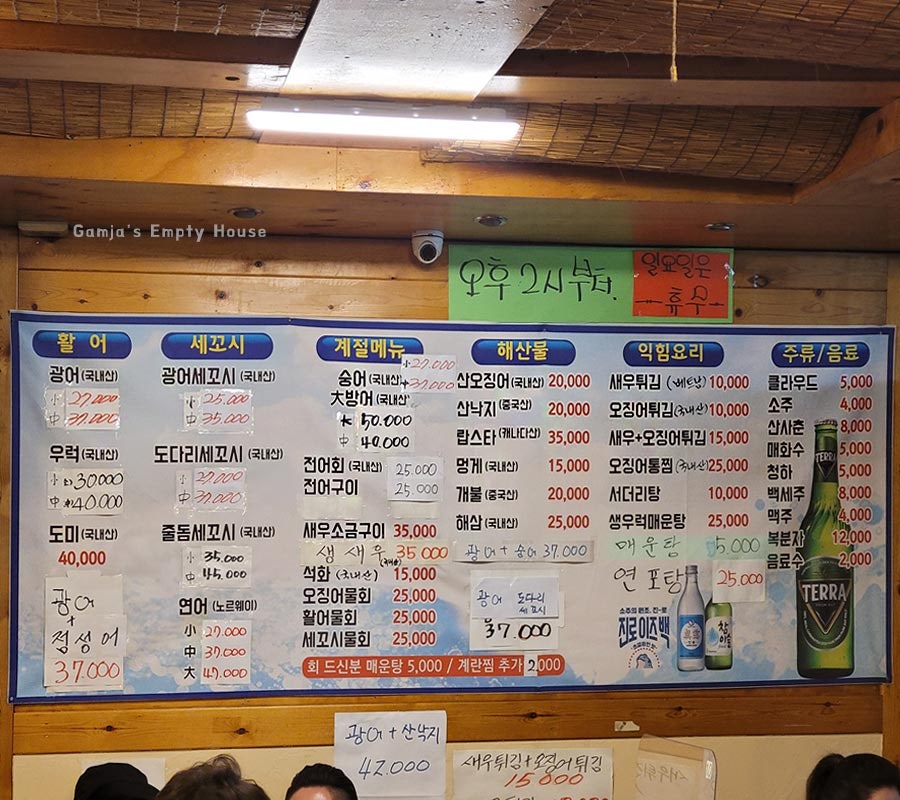 Gamja's Empty House
오후 2시 부터.
일요일은
휴무
활 어
광어(국내산)
小 27.000
中 37.000
우럭(국내산)
小 30000
中 40.000
도미(국내산)
40,000
광어
+
점성어
37.000
세꼬시
광어세꼬시 (국내산)
小 25.000
中 35.000
도다리세꼬시 (국내산)
小 27.000
中 37.000
줄돔세꼬시 (국내산)
小 35.000
中 45.000
연어 (노르웨이)
小 27.000
中 37.000
大 47.000
계절메뉴
숭어(국내산) 小 27.000
中 37.000
大방어(국내산)
大 50.000
中 40.000
전어회 (국내산) 25.000
전어구이 25.000
새우소금구이 35,000
생새우 35 000
석화 (국내산) 15,000
오징어물회 25,000
활어물회 25,000
세꼬시물회 25,000
회 드신분 매운탕 5,000 / 계란찜 추가 2,000
해산물
산오징어(국내산) 20,000
산낙지 (중국산) 20,000
랍스타 (캐나다산) 35,000
멍게 (국내산) 15,000
개불 (중국산) 20,000
해삼 (국내산) 20,000
광어 + 숭어 37.000
광어 도다리
세꼬시
37.000
익힘요리
새우튀김 (베트남) 10,000
오징어튀김(국내산) 10,000
새우+오징어튀김 15,000
오징어통찜 (국내산) 25,000
서더리탕 10,000
생우럭매운탕 25,000
매운탕 5.000
연포탕 25.000
소주의 원조, 진-로
진로이즈백
眞露
참이슬
주류/음료
클라우드 5,000
소주 4,000
산사춘 8,000
매화수 5,000
청하 5,000
백세주 8,000
맥주 4,000
복분자 12,000
음료수 2,000
TERRA
TERRA
광어 + 산낙지
42.000
새우튀김+오징어튀김
15 000
새우튀김